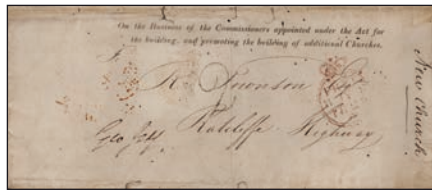 On the Business of the Commissioners appointed under the Act for
the building, and promoting the building of additional Churches.
R. Townson
Ratcliffe Highway
New church